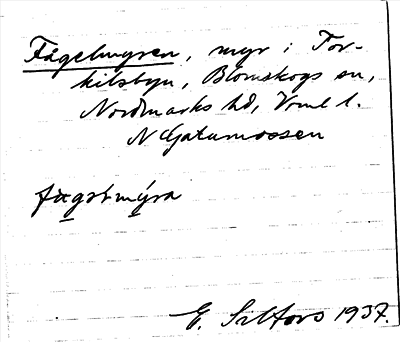 Fågelmyren, myr i Tor-
kilsbyn, Blomskogs sn,
Nordmarks hd, Vrml l.
N Gatumossen
fùgəlmýra
E. Salfors 1937.